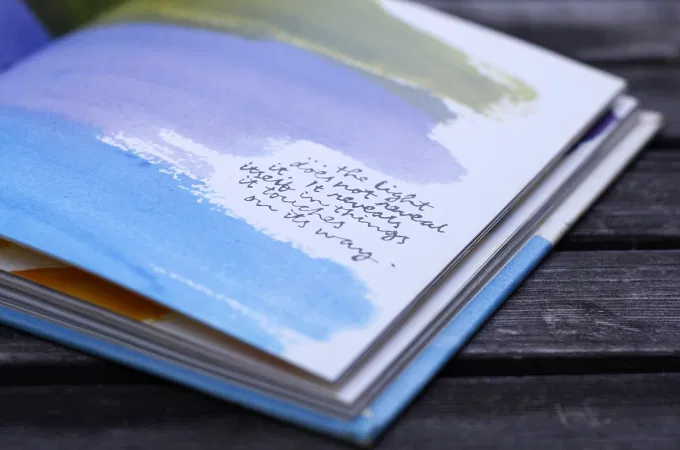 ... the light
does not reveal
it. It reveals
itself in things
it touches
on its way.